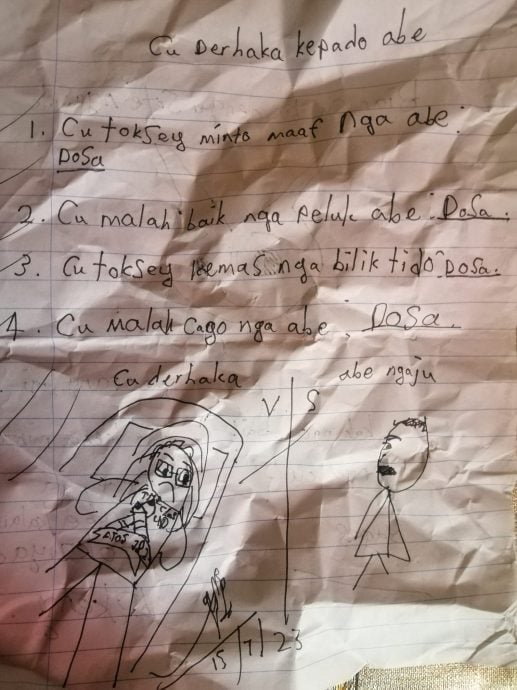 Cu Derhaka kepado abe
1. Cu toksey minto maaf nga abe:
Dosa
2. Cu malah baik nga peluk abe: Dosa.
3. Cu toksey kemas nga bilik tido: Dosa.
4. Cu malah Cago nga abe: Dosa.
Cu derhaka
V S
abe ngaju
15/7/23